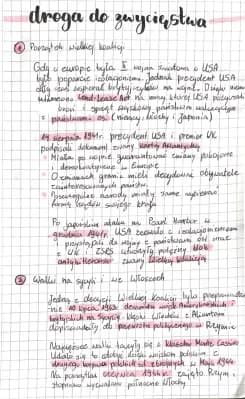 droga do zwycięstwa
1 Początek wielkiej koalicji
Gdy w europie była II wojna światowa w USA
było poparcie izolacjonizmu. Jednak prezydent USA
chciał wspierać brytyjczyków w wojnie. Dzięki niemu
uchwalono Lend-Lease Act na mocy której USA pożyczało
broń i sprzęt wojskowy państwom walczącym z
państwami osi (niemcy, włochy i Japonia)
14 sierpnia 1941r. prezydent USA i premier UK
podpisali dokument zwany kartą Atlantycką
Miała po wojnie gwarantować zmiany pokojowe
i demokratyczne w Europie
O zmianach granic mieli decydować obywatele
zainteresowanych państw.
Poszczególne narody miały same wybierać
formę rządów swojego kraju
Po japońskim ataku na Pearl Harbor w
grudniu 1941r. USA zerwało z izolacjonizmem
i przystąpiło do wojny z państwami osi oraz
z UK i ZSRS utworzyły potężny blok
antyhitlerowski zwany Wielką koalicją
2 Walki na Sycylii i we Włoszech
Jedną z decyzji Wielkiej koalicji było
10 lipca 1943 desantu wojsk Amerykańskich i
brytyjskich na Sycylii. Klęski Włochów z Aliantami
doprowadziły do przewrotu politycznego w Rzymie
Najcięższe walki toczyły się o klasztor Monte Cassino
Udało się to zdobyć dzięki wojskom polskim z
drugiego korpusu polskich sił zbrojnych w Maju 1944
Na początku czerwca 1944 zajęto Rzym i
stopniowo wyzwalano północne Włochy